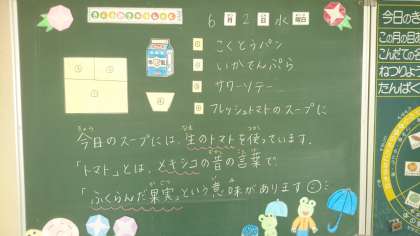 6月2日水曜日
こくとうパン
いかてんぷら
サワーソテー
フレッシュトマトのスープに
今日のスープには、生のトマトを使っています。
「トマト」とは、メキシコの昔の言葉で
「ふくらんだ果実」という意味があります
今日の
この月の目
こんだての名
ねつりょ
たんぱく